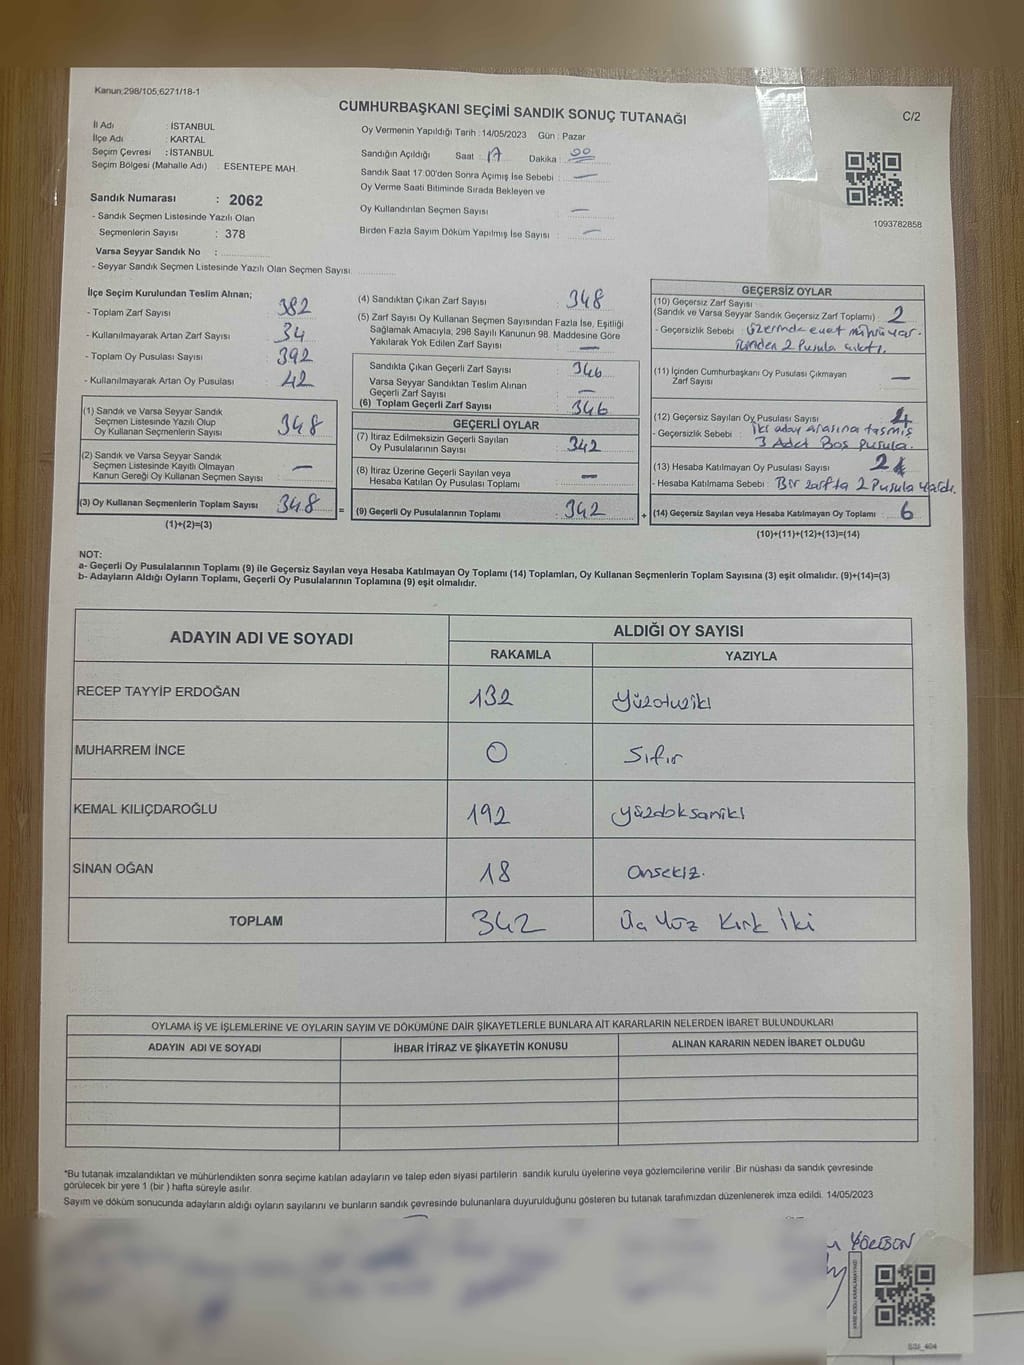 Kanun,298/105,6271/18-1
CUMHURBAŞKANI SEÇİMİ SANDIK SONUÇ TUTANAĞI
C/2
İl Adı : İSTANBUL
İlçe Adı : KARTAL
Seçim Çevresi : İSTANBUL
Seçim Bölgesi (Mahalle Adı) : ESENTEPE MAH.
Sandık Numarası : 2062
- Sandık Seçmen Listesinde Yazılı Olan
Seçmenlerin Sayısı : 378
Varsa Seyyar Sandık No :
- Seyyar Sandık Seçmen Listesinde Yazılı Olan Seçmen Sayısı
Oy Vermenin Yapıldığı Tarih : 14/05/2023 Gün : Pazar
Sandığın Açıldığı Saat : 17 Dakika : 00
Sandık Saat 17.00'den Sonra Açımış İse Sebebi : —
Oy Verme Saati Bitiminde Sırada Bekleyen ve
Oy Kullandırılan Seçmen Sayısı : —
Birden Fazla Sayım Döküm Yapılmış İse Sayısı : —
1093782858
İlçe Seçim Kurulundan Teslim Alınan;
- Toplam Zarf Sayısı : 382
- Kullanılmayarak Artan Zarf Sayısı : 34
- Toplam Oy Pusulası Sayısı : 392
- Kullanılmayarak Artan Oy Pusulası : 42
(1) Sandık ve Varsa Seyyar Sandık
Seçmen Listesinde Yazılı Olup
Oy Kullanan Seçmenlerin Sayısı : 348
(2) Sandık ve Varsa Seyyar Sandık
Seçmen Listesinde Kayıtlı Olmayan
Kanun Gereği Oy Kullanan Seçmen Sayısı : —
(3) Oy Kullanan Seçmenlerin Toplam Sayısı : 348
(1)+(2)=(3)
(4) Sandıktan Çıkan Zarf Sayısı : 348
(5) Zarf Sayısı Oy Kullanan Seçmen Sayısından Fazla İse, Eşitliği
Sağlamak Amacıyla, 298 Sayılı Kanunun 98. Maddesine Göre
Yakılarak Yok Edilen Zarf Sayısı : —
Sandıkta Çıkan Geçerli Zarf Sayısı : 346
Varsa Seyyar Sandıktan Teslim Alınan
Geçerli Zarf Sayısı : —
(6) Toplam Geçerli Zarf Sayısı : 346
GEÇERLİ OYLAR
(7) İtiraz Edilmeksizin Geçerli Sayılan
Oy Pusulalarının Sayısı : 342
(8) İtiraz Üzerine Geçerli Sayılan veya
Hesaba Katılan Oy Pusulası Toplamı : —
= (9) Geçerli Oy Pusulalarının Toplamı : 342
GEÇERSİZ OYLAR
(10) Geçersiz Zarf Sayısı
(Sandık ve Varsa Seyyar Sandık Geçersiz Zarf Toplamı) : 2
- Geçersizlik Sebebi : Üzerinde evet mührü var.
içinden 2 Pusula çıktı.
(11) İçinden Cumhurbaşkanı Oy Pusulası Çıkmayan
Zarf Sayısı : —
(12) Geçersiz Sayılan Oy Pusulası Sayısı : 4
- Geçersizlik Sebebi : İki aday arasına taşmış
3 Adet Boş pusula.
(13) Hesaba Katılmayan Oy Pusulası Sayısı : 2
- Hesaba Katılmama Sebebi : Bir zarfta 2 Pusula vardı.
+ (14) Geçersiz Sayılan veya Hesaba Katılmayan Oy Toplamı : 6
(10)+(11)+(12)+(13)=(14)
NOT:
a- Geçerli Oy Pusulalarının Toplamı (9) ile Geçersiz Sayılan veya Hesaba Katılmayan Oy Toplamı (14) Toplamları, Oy Kullanan Seçmenlerin Toplam Sayısına (3) eşit olmalıdır. (9)+(14)=(3)
b- Adayların Aldığı Oyların Toplamı, Geçerli Oy Pusulalarının Toplamına (9) eşit olmalıdır.
ADAYIN ADI VE SOYADI
ALDIĞI OY SAYISI
RAKAMLA YAZIYLA
RECEP TAYYİP ERDOĞAN 132 Yüzotuziki
MUHARREM İNCE 0 Sıfır
KEMAL KILIÇDAROĞLU 192 yüzdoksaniki
SİNAN OĞAN 18 Onsekiz.
TOPLAM 342 Üç Yüz Kırk İki
OYLAMA İŞ VE İŞLEMLERİNE VE OYLARIN SAYIM VE DÖKÜMÜNE DAİR ŞİKAYETLERLE BUNLARA AİT KARARLARIN NELERDEN İBARET BULUNDUKLARI
ADAYIN ADI VE SOYADI İHBAR İTİRAZ VE ŞİKAYETİN KONUSU ALINAN KARARIN NEDEN İBARET OLDUĞU
*Bu tutanak imzalandıktan ve mühürlendikten sonra seçime katılan adayların ve talep eden siyasi partilerin sandık kurulu üyelerine veya gözlemcilerine verilir .Bir nüshası da sandık çevresinde
görülecek bir yere 1 (bir ) hafta süreyle asılır.
Sayım ve döküm sonucunda adayların aldığı oyların sayılarını ve bunların sandık çevresinde bulunanlara duyurulduğunu gösteren bu tutanak tarafımızdan düzenlenerek imza edildi. 14/05/2023